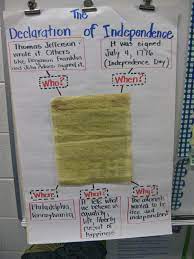 The
Declaration of Independence
Thomas Jefferson
wrote it. Others
like Benjamin Franklin
and John Adams signed it.
It was signed
July 4, 1776
(Independence Day)
Who?
When?
Where?
What?
Why?
Philadelphia,
Pennsylvania
we
believe in
equality,
life, liberty
pursuit of
happiness
The colonists
wanted to be
free and
independent!